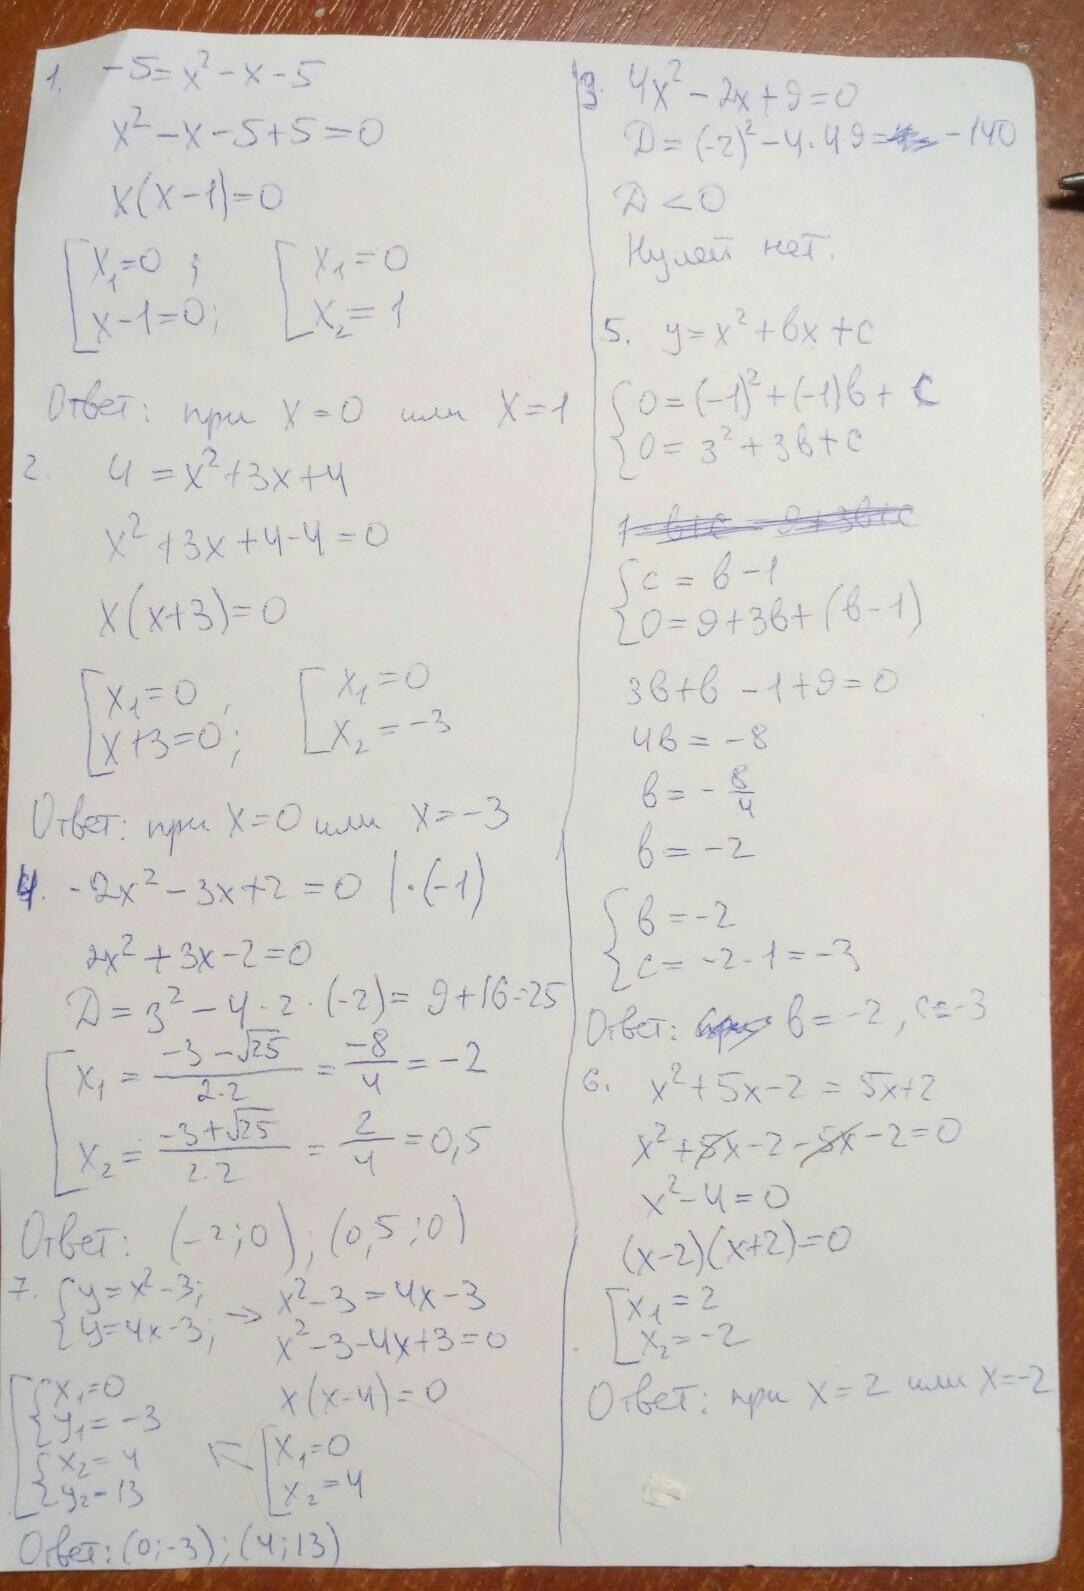 1. -5=x²-x-5
x²-x-5+5=0
x(x-1)=0
[x₁=0; [x₁=0
x-1=0; x₂=1
Ответ: при x=0 или x=1
2. 4=x²+3x+4
x²+3x+4-4=0
x(x+3)=0
[x₁=0; [x₁=0
x+3=0; x₂=-3
Ответ: при x=0 или x=-3
4. -2x²-3x+2=0 |·(-1)
2x²+3x-2=0
D=3²-4·2·(-2)=9+16=25
[x₁=(-3-√25)/(2·2)=-8/4=-2
x₂=(-3+√25)/(2·2)=2/4=0,5
Ответ: (-2;0);(0,5;0)
7. {y=x²-3; → x²-3=4x-3
y=4x-3; x²-3-4x+3=0
x(x-4)=0
[x₁=0
x₂=4
[{x₁=0
y₁=-3
{x₂=4
y₂=13
Ответ: (0;-3);(4;13)
3. 4x²-2x+9=0
D=(-2)²-4·4·9=-140
D<0
Нулей нет.
5. y=x²+bx+c
{0=(-1)²+(-1)b+c
0=3²+3b+c
1-b+c=9+3b+c
{c=b-1
0=9+3b+(b-1)
3b+b-1+9=0
4b=-8
b=-8/4
b=-2
{b=-2
c=-2-1=-3
Ответ: b=-2, c=-3
6. x²+5x-2=5x+2
x²+5x-2-5x-2=0
x²-4=0
(x-2)(x+2)=0
[x₁=2
x₂=-2
Ответ: при x=2 или x=-2